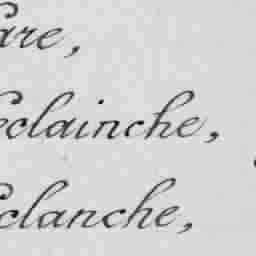 are,
eclainche,
clanche,